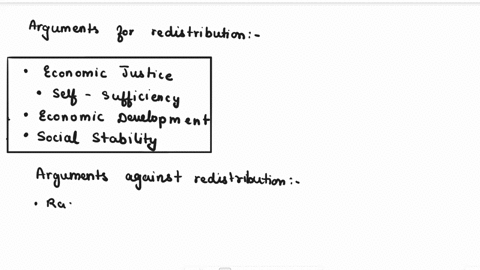 Arguments for redistribution:-
• Economic Justice
• Self - Sufficiency
• Economic Development
• Social Stability
Arguments against redistribution:-
• Ra